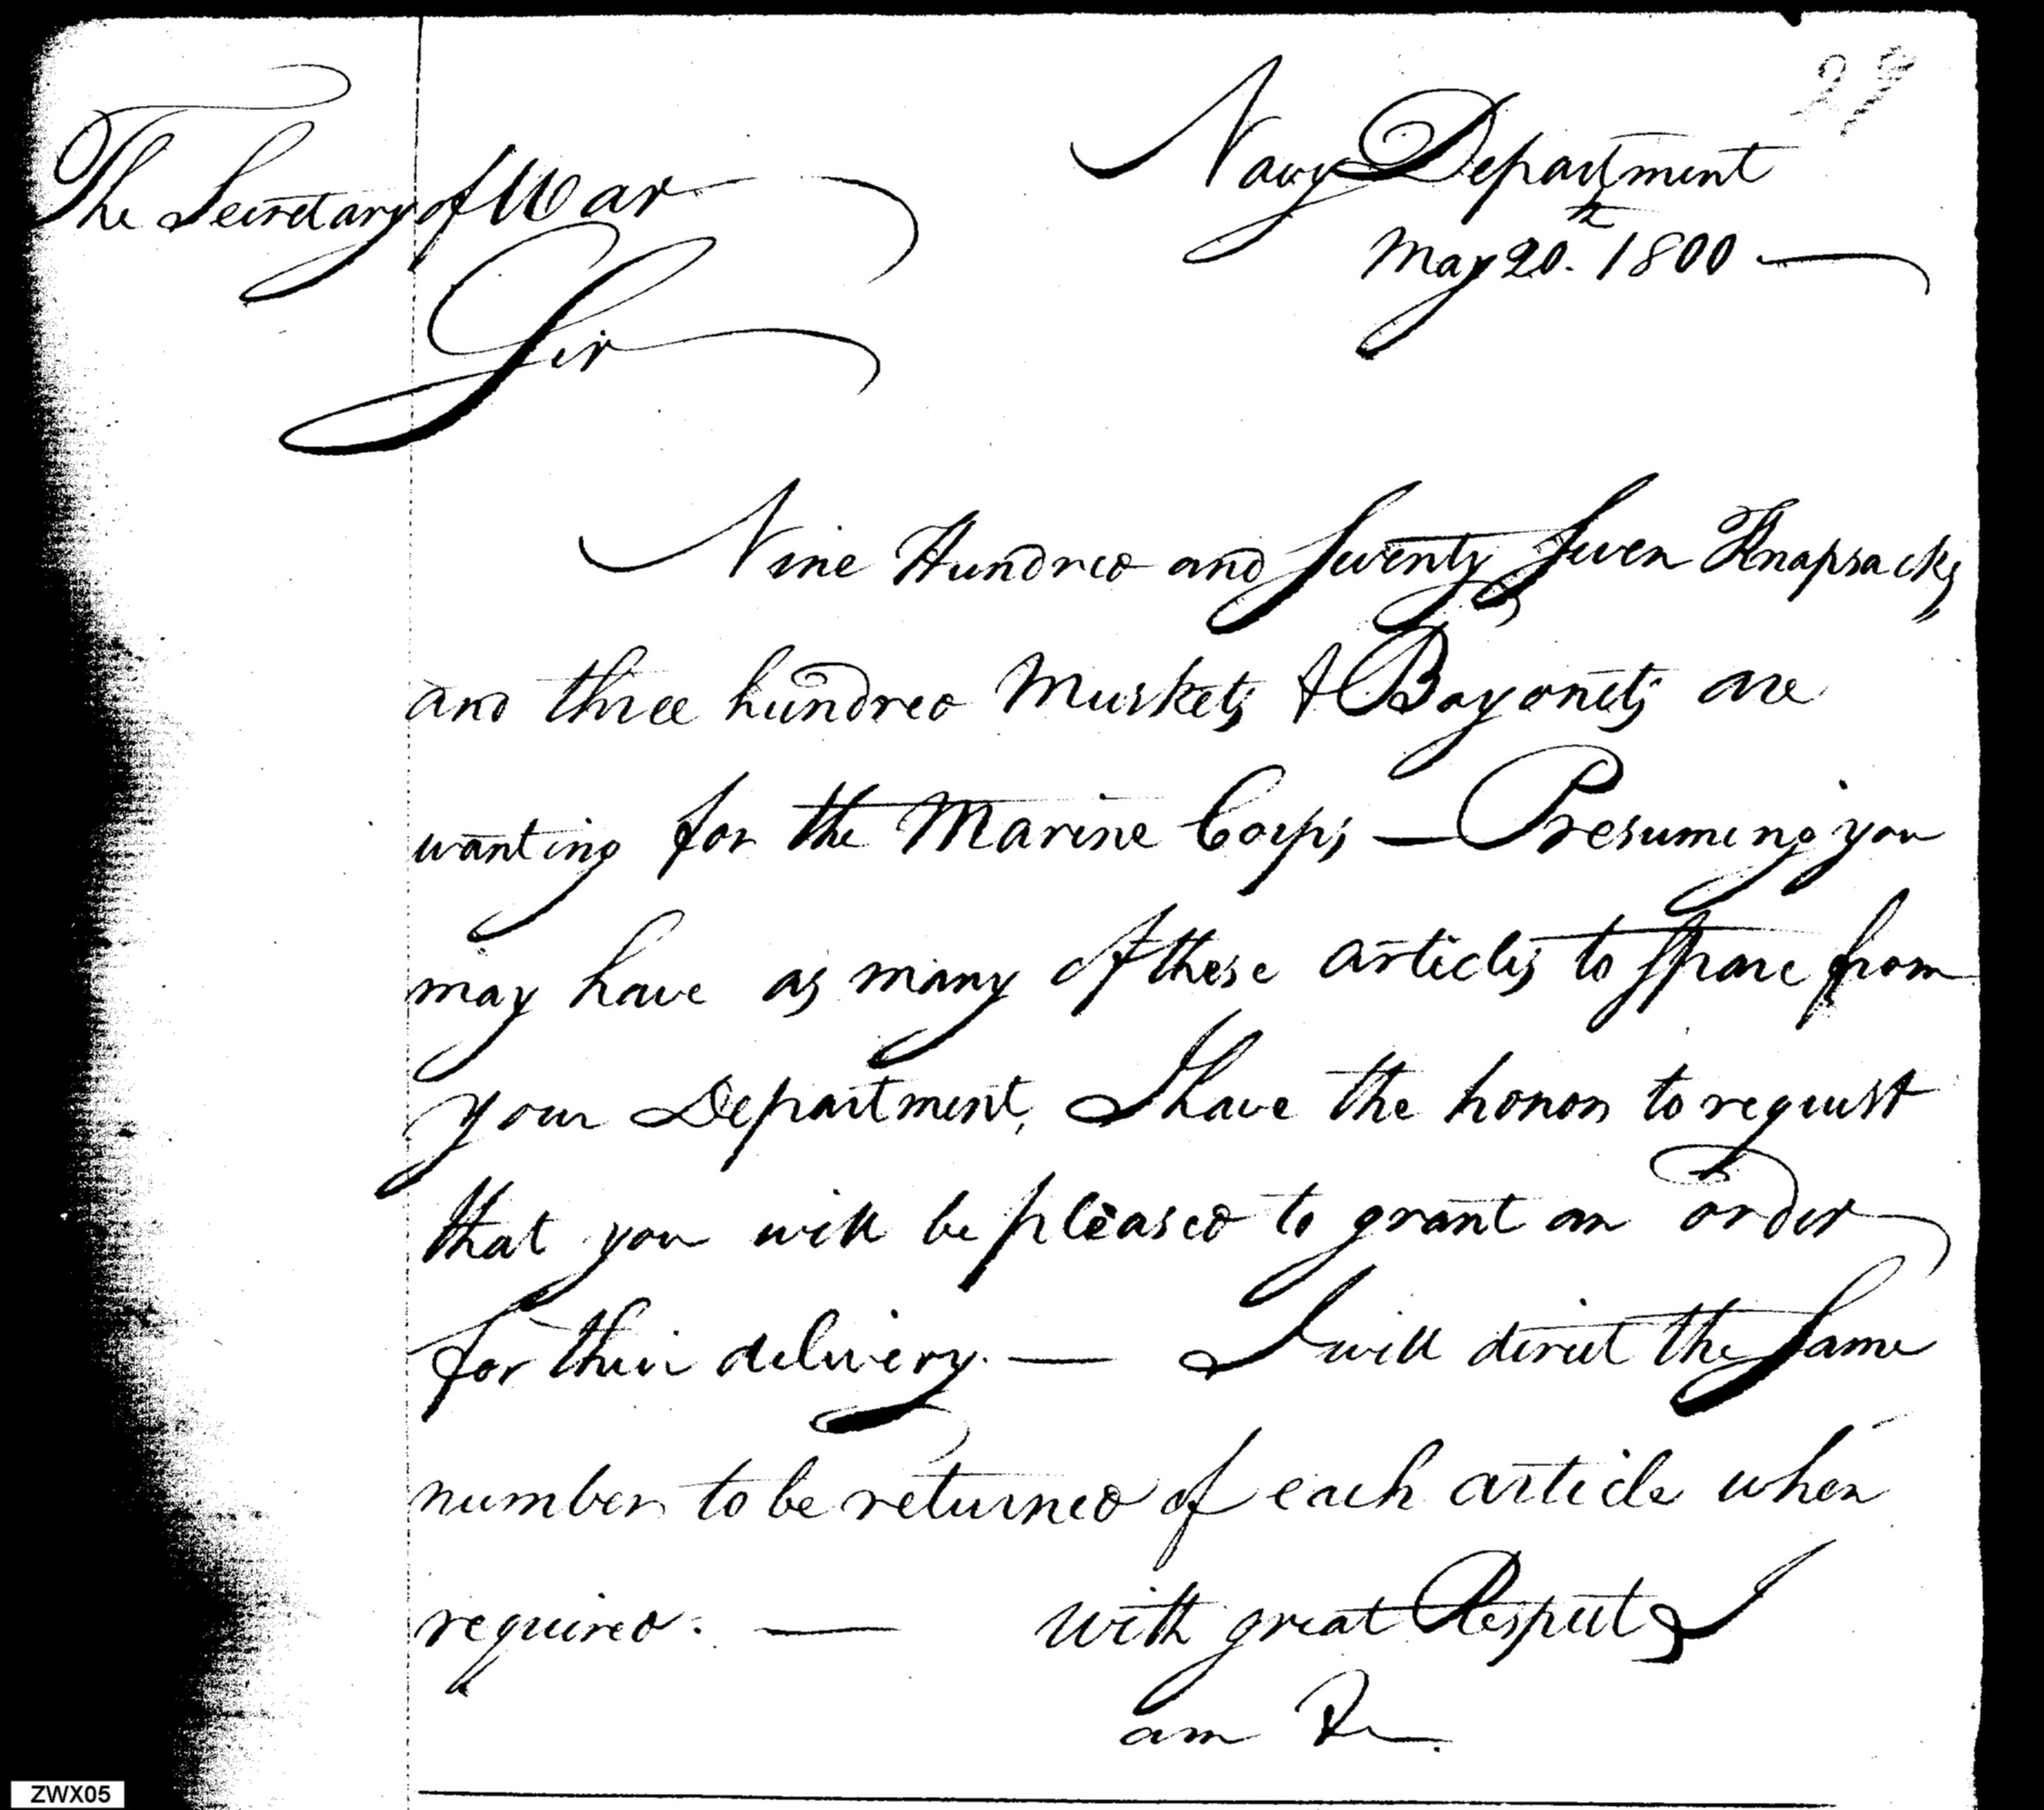 29
The Secretary of War
Navy Department
May 20th 1800
Sir
Nine Hundred and Seventy Seven Knapsacks
and three hundred Muskets & Bayonets are
wanting for the Marine Corps — Presuming you
may have as many of these articles to spare from
your Department, I have the honor to request
that you will be pleased to grant an order
for their delivery. — I will direct the same
number to be returned of each article when
required. — with great Respect I
am &c.
ZWX05